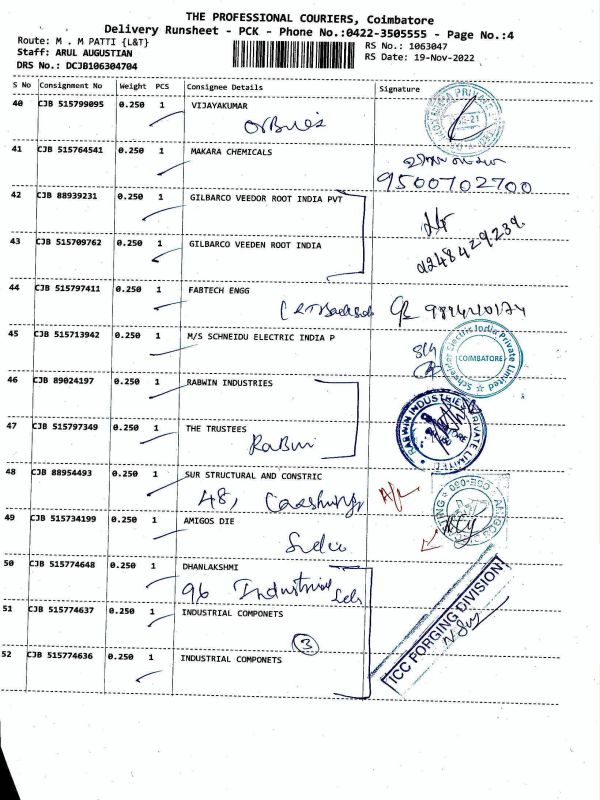 THE PROFESSIONAL COURIERS, Coimbatore
Delivery Runsheet - PCK - Phone No.:0422-3505555 - Page No.:4
Route: M . M PATTI {L&T}
RS No.: 1063047
Staff: ARUL AUGUSTIAN
RS Date: 19-Nov-2022
DRS No.: DCJB106304704
S No Consignment No Weight PCS Consignee Details Signature
40 CJB 515799095 0.250 1 VIJAYAKUMAR
41 CJB 515764541 0.250 1 MAKARA CHEMICALS
9500702700
42 CJB 88939231 0.250 1 GILBARCO VEEDOR ROOT INDIA PVT
43 CJB 515709762 0.250 1 GILBARCO VEEDEN ROOT INDIA
44 CJB 515797411 0.250 1 FABTECH ENGG
45 CJB 515713942 0.250 1 M/S SCHNEIDU ELECTRIC INDIA P
Schneider Electric India Private Limited
COIMBATORE
46 CJB 89024197 0.250 1 RABWIN INDUSTRIES
RABWIN INDUSTRIES PRIVATE LIMITED
47 CJB 515797349 0.250 1 THE TRUSTEES
48 CJB 88954493 0.250 1 SUR STRUCTURAL AND CONSTRIC
48,
49 CJB 515734199 0.250 1 AMIGOS DIE
50 CJB 515774648 0.250 1 DHANLAKSHMI
96 Industrial
51 CJB 515774637 0.250 1 INDUSTRIAL COMPONETS
ICC FORGING DIVISION
3
52 CJB 515774636 0.250 1 INDUSTRIAL COMPONETS